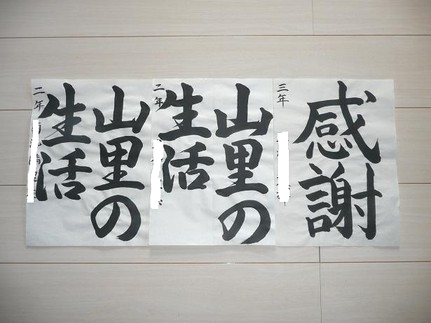 感謝
三年
山里の
生活
二年
山里の
生活
二年